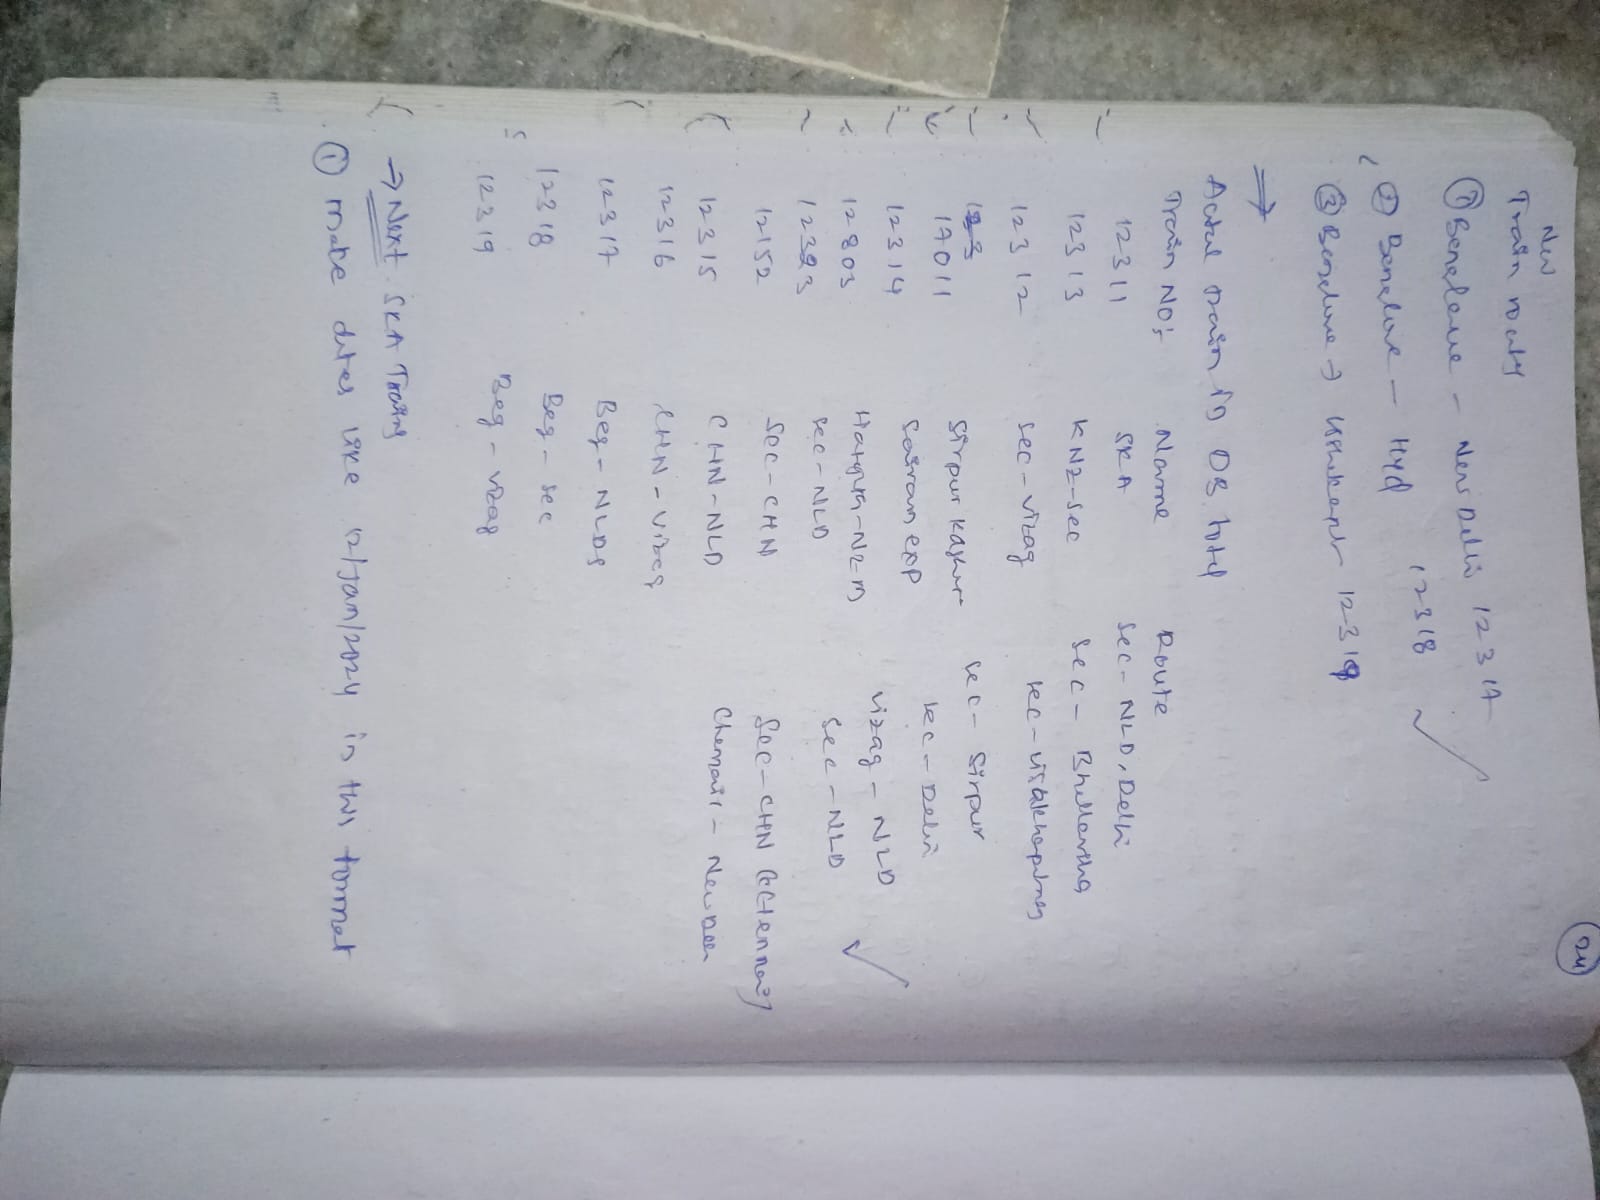 24
New
Train routs
① Bangalore - New Delhi 12317
② Banglore - Hyd 12318
③ Banglore → 12319
⇒
Actul train in DB totl
Train NO's Name Route
12311 SKA Sec - NLD, Delhi
12313 KNZ-Sec Sec - Bhellarsha
12312 Sec - Vizag Sec - Visakhaptnag
17011 Sirpur Kaghur Sec - Sirpur
12314 Sairam exp Sec - Delhi
12803 NZM Vizag - NLD
12323 Sec - NLD Sec - NLD
12152 Sec - CHN Sec - CHN (Chennai)
12315 CHN - NLD Chennai - New Delh
12316 CHN - Vizag
12317 Beg - NLDS
12318 Beg - Sec
12319 Beg - Vizag
→ Next SKA Trains
① make dates like 12/Jan/2024 in this format